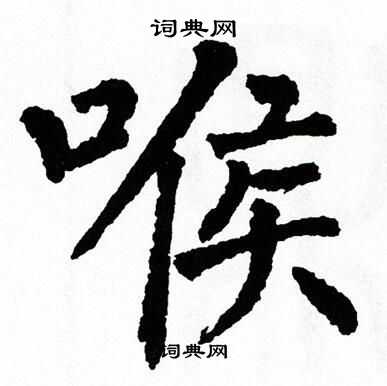 词典网
喉
词典网